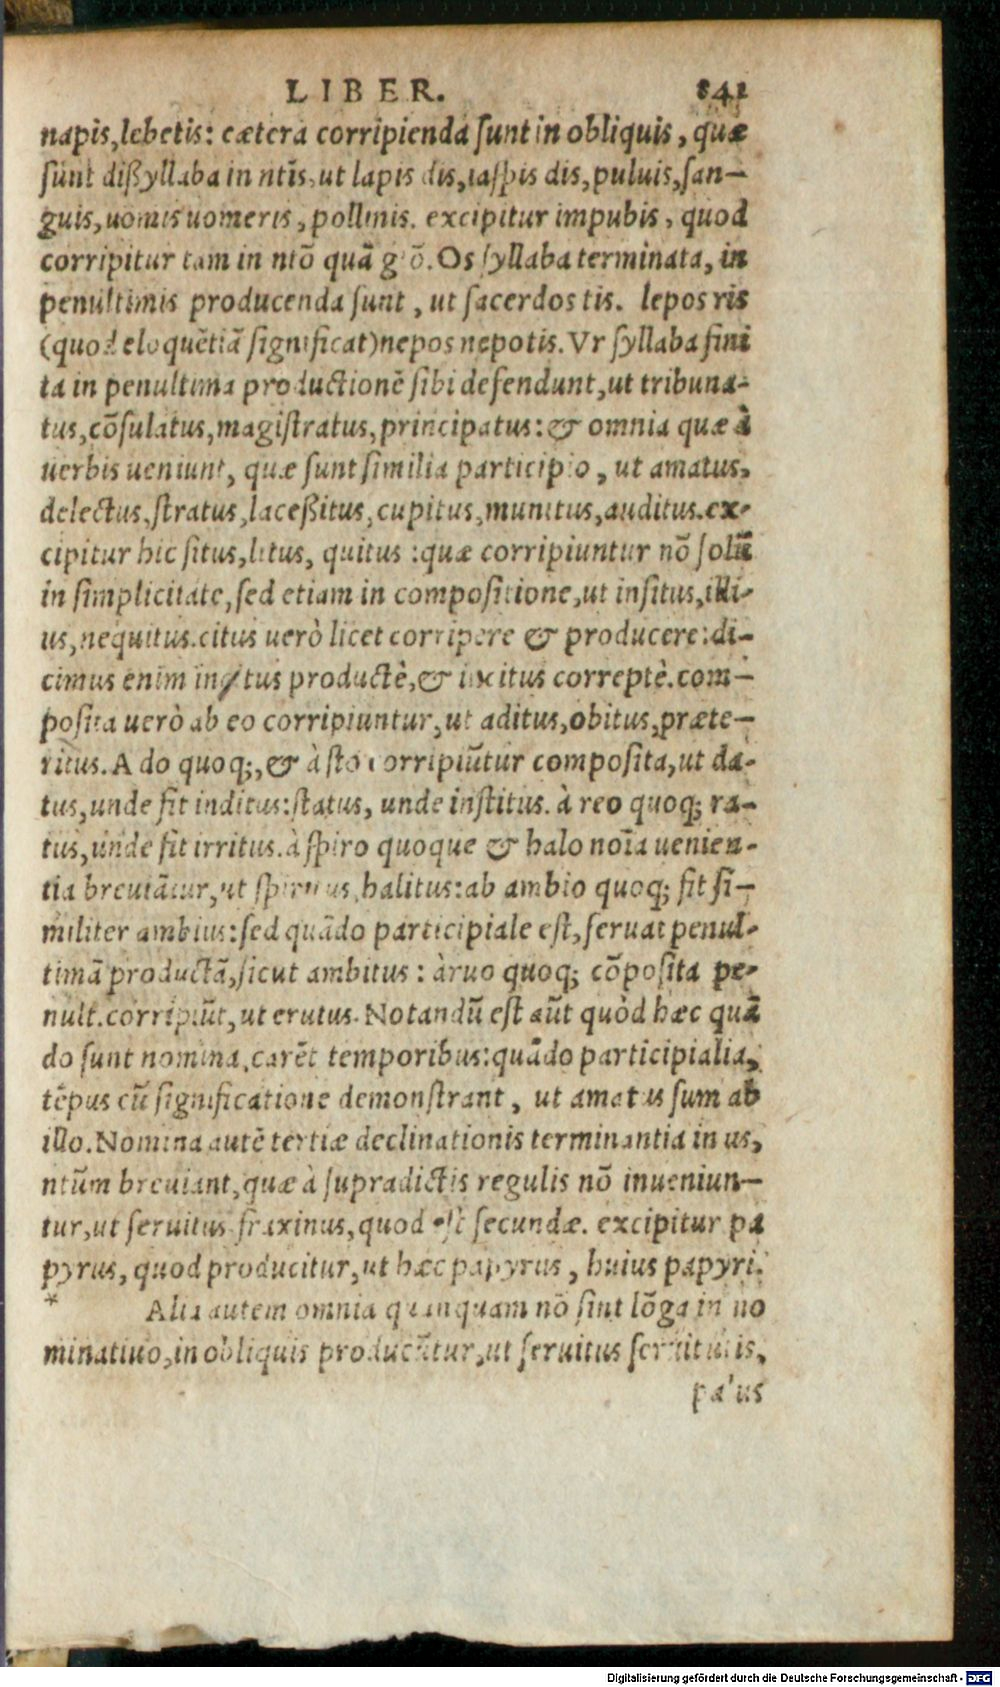 LIBER. 841
napis,lebetis: cætera corripienda sunt in obliquis, quæ
sunt dißyllaba in ntīs,ut lapis dis,iaspis dis,puluis,san-
guis,uomis uomeris,pollinis. excipitur impubis, quod
corripitur tam in ntō quā gtō.Os syllaba terminata, in
penultimis producenda sunt, ut sacerdos tis. lepos ris
(quod eloquētiā significat)nepos nepotis.Vr syllaba fini
ta in penultima productionē sibi defendunt,ut tribuna-
tus,cōsulatus,magistratus,principatus:& omnia quæ à
uerbis ueniunt, quæ sunt similia participio, ut amatus,
delectus,stratus,laceßitus,cupitus,munitus,auditus.ex-
cipitur hic situs,litus, quitus :quæ corripiuntur nō solū
in simplicitate,sed etiam in compositione,ut insitus,illi-
us,nequitus.citus uerò licet corripere & producere:di-
cimus enim tus productè,& citus correptè.com-
posita uerò ab eo corripiuntur,ut aditus,obitus,præte-
ritus.A do quoq;,& à sto corripiūtur composita,ut da-
tus,unde fit inditus:status, unde institus. à reo quoq; ra-
tus,unde fit irritus.à spiro quoque & halo noīa uenien-
tia breuiātur,ut spiritus,halitus:ab ambio quoq; fit si-
militer ambius:sed quādo participiale est,seruat penul-
timā productā,sicut ambitus: àruo quoq; cōposita pe-
nult.corripiūt,ut erutus.Notandū est aūt quòd hæc quā
do sunt nomina,carēt temporibus:quādo participialia,
tēpus cū significatione demonstrant, ut amatus sum ab
illo.Nomina autē tertiæ declinationis terminantia in us,
ntūm breuiant,quæ à supradictis regulis nō inueniun-
tur,ut seruitus fraxinus,quod est secundæ. excipitur pa
pyrus, quod producitur,ut hæc papyrus, huius papyri.
* Alia autem omnia quanquam nō sint lōga in no
minatiuo,in obliquis producūtur,ut seruitus seruitutis,
palus
Digitalisierung gefördert durch die Deutsche Forschungsgemeinschaft - DFG